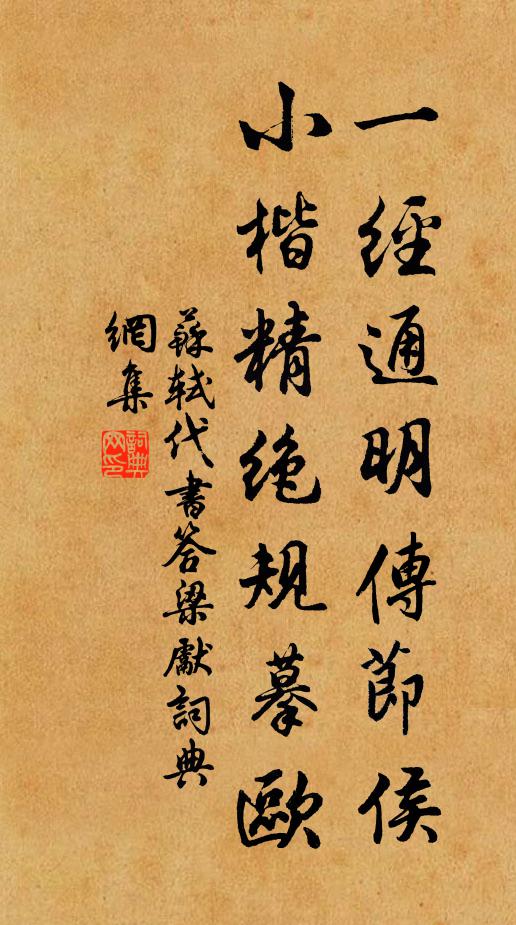 一經通明傳節侯
小楷精絶規摹歐
蘇軾代書答梁獻詞典
網集
詞典
网印